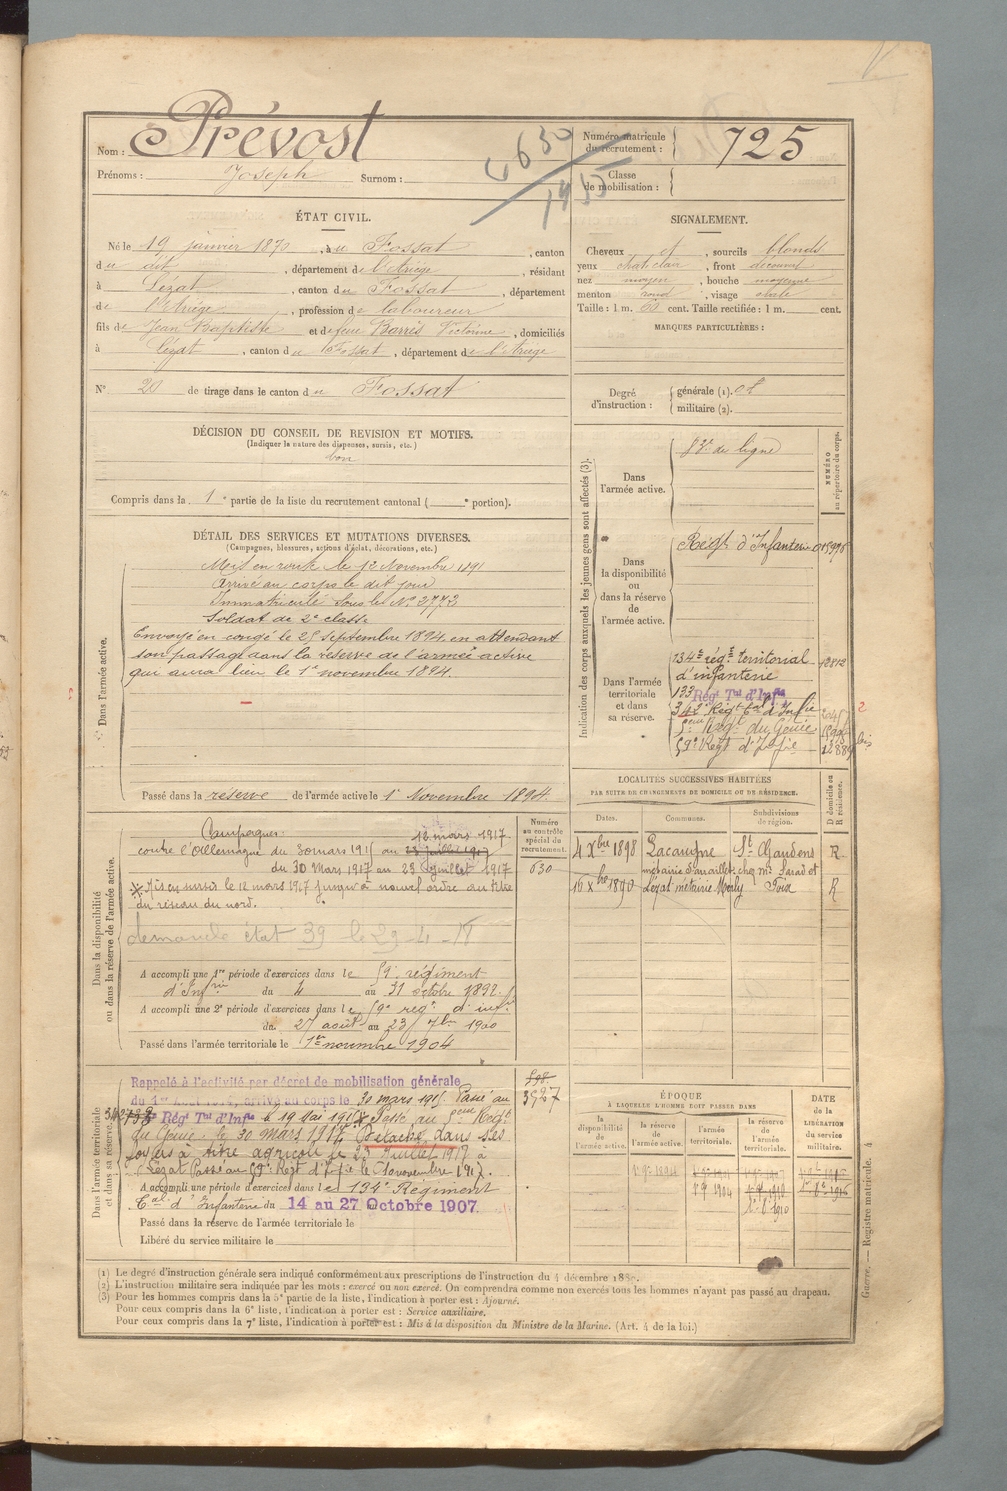 Nom : Prévost
Prénoms : Joseph Surnom :
Numéro matricule du recrutement : 725
Classe de mobilisation :
ÉTAT CIVIL.
Né le 19 janvier 1870, à u Fossat, canton
du dit, département de l'Ariège, résidant
à Lézat, canton du Fossat, département
de l'Ariège, profession de laboureur
fils de Jean Baptiste et de feue Barrès Victorine, domiciliés
à Lézat, canton du Fossat, département de l'Ariège
N° 20 de tirage dans le canton du Fossat
DÉCISION DU CONSEIL DE REVISION ET MOTIFS.
(Indiquer la nature des dispenses, sursis, etc.)
bon
Compris dans la 1e partie de la liste du recrutement cantonal ( e portion).
SIGNALEMENT.
Cheveux et, sourcils blonds
yeux chat clair, front découvert
nez moyen, bouche moyenne
menton rond, visage ovale
Taille : 1 m. 60 cent. Taille rectifiée : 1 m. cent.
MARQUES PARTICULIÈRES :
Degré d'instruction :
générale (1).
militaire (2).
DÉTAIL DES SERVICES ET MUTATIONS DIVERSES.
(Campagnes, blessures, actions d'éclat, décorations, etc.)
Dans l'armée active.
Mis en route le 12 Novembre 1891
Arrivé au corps le dit jour
Immatriculé sous le N° 2772
Soldat de 2e classe
Envoyé en congé le 25 septembre 1894 en attendant
son passage dans la réserve de l'armée active
qui aura lieu le 1er novembre 1894.
Passé dans la réserve de l'armée active le 1er Novembre 1894.
Indication des corps auxquels les jeunes gens sont affectés (3).
NUMÉRO au répertoire du corps.
Dans l'armée active.
de ligne
Dans la disponibilité ou dans la réserve de l'armée active.
Régt d'Infanterie
Dans l'armée territoriale et dans sa réserve.
134e régt territorial
d'infanterie
133 Régt Tal d'Infie
342e Régt Tal d'Infie
5ème Régt du Génie
59e Régt d'Infie
LOCALITÉS SUCCESSIVES HABITÉES
PAR SUITE DE CHANGEMENTS DE DOMICILE OU DE RÉSIDENCE.
Dates. Communes. Subdivisions de région. D domicile ou R résidence.
4 Xbre 1898 Lacaugne St Gaudens R
16 Xbre 1890 Lézat métairie Foix R
Dans la disponibilité ou dans la réserve de l'armée active.
Numéro au contrôle spécial de recrutement.
630
Campagnes : 12 mars 1917
contre l'Allemagne du 30 mars 1915 au 23 juillet 1917
du 30 Mars 1917 au 23 Juillet 1917
Mis en sursis le 12 mars 1917 jusqu'à nouvel ordre au titre
du réseau du nord.
demande état 39 le 29-4-18
A accompli une 1re période d'exercices dans le 59e régiment
d'Infie du 4 au 31 octobre 1892.
A accompli une 2e période d'exercices dans le 59e régt d'infie
du 27 août au 23 7bre 1900
Passé dans l'armée territoriale le 1er novembre 1904
Dans l'armée territoriale et dans sa réserve.
Rappelé à l'activité par décret de mobilisation générale
du 1er Août 1914, arrivé au corps le 30 mars 1915. Passé au
Régt Tal d'Infie le 19 Mai 1915. Passé au 5ème Régt
du Génie le 30 mars 1917. Détaché dans ses
foyers à titre agricole le 23 Juillet 1917 à
Lézat. Passé au 59e Régt d'Infie le novembre 1917.
A accompli une période d'exercices dans le 134e Régiment
Tal d'Infanterie du 14 au 27 Octobre 1907.
Passé dans la réserve de l'armée territoriale le
Libéré du service militaire le
ÉPOQUE
À LAQUELLE L'HOMME DOIT PASSER DANS
la disponibilité de l'armée active. la réserve de l'armée active. l'armée territoriale. la réserve de l'armée territoriale.
DATE de la LIBÉRATION du service militaire.
(1) Le degré d'instruction générale sera indiqué conformément aux prescriptions de l'instruction du 4 décembre 1889.
(2) L'instruction militaire sera indiquée par les mots : exercé ou non exercé. On comprendra comme non exercés tous les hommes n'ayant pas passé au drapeau.
(3) Pour les hommes compris dans la 5e partie de la liste, l'indication à porter est : Ajourné.
Pour ceux compris dans la 6e liste, l'indication à porter est : Service auxiliaire.
Pour ceux compris dans la 7e liste, l'indication à porter est : Mis à la disposition du Ministre de la Marine. (Art. 4 de la loi.)
Guerre. — Registre matricule. 4